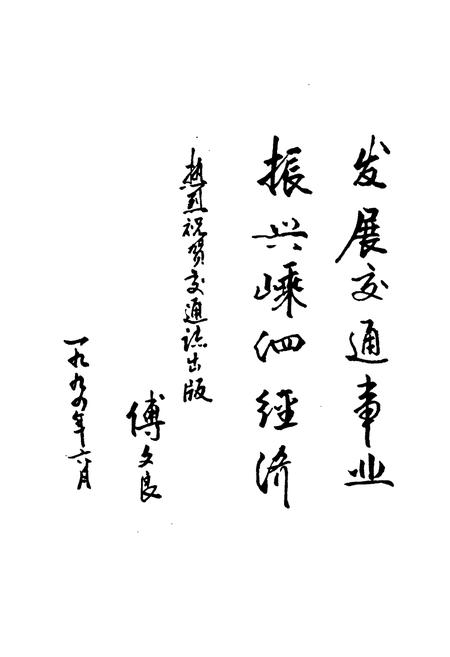 发展交通事业
振兴嵊泗經济
热烈祝贺交通志出版
傅文良
一九九四年六月